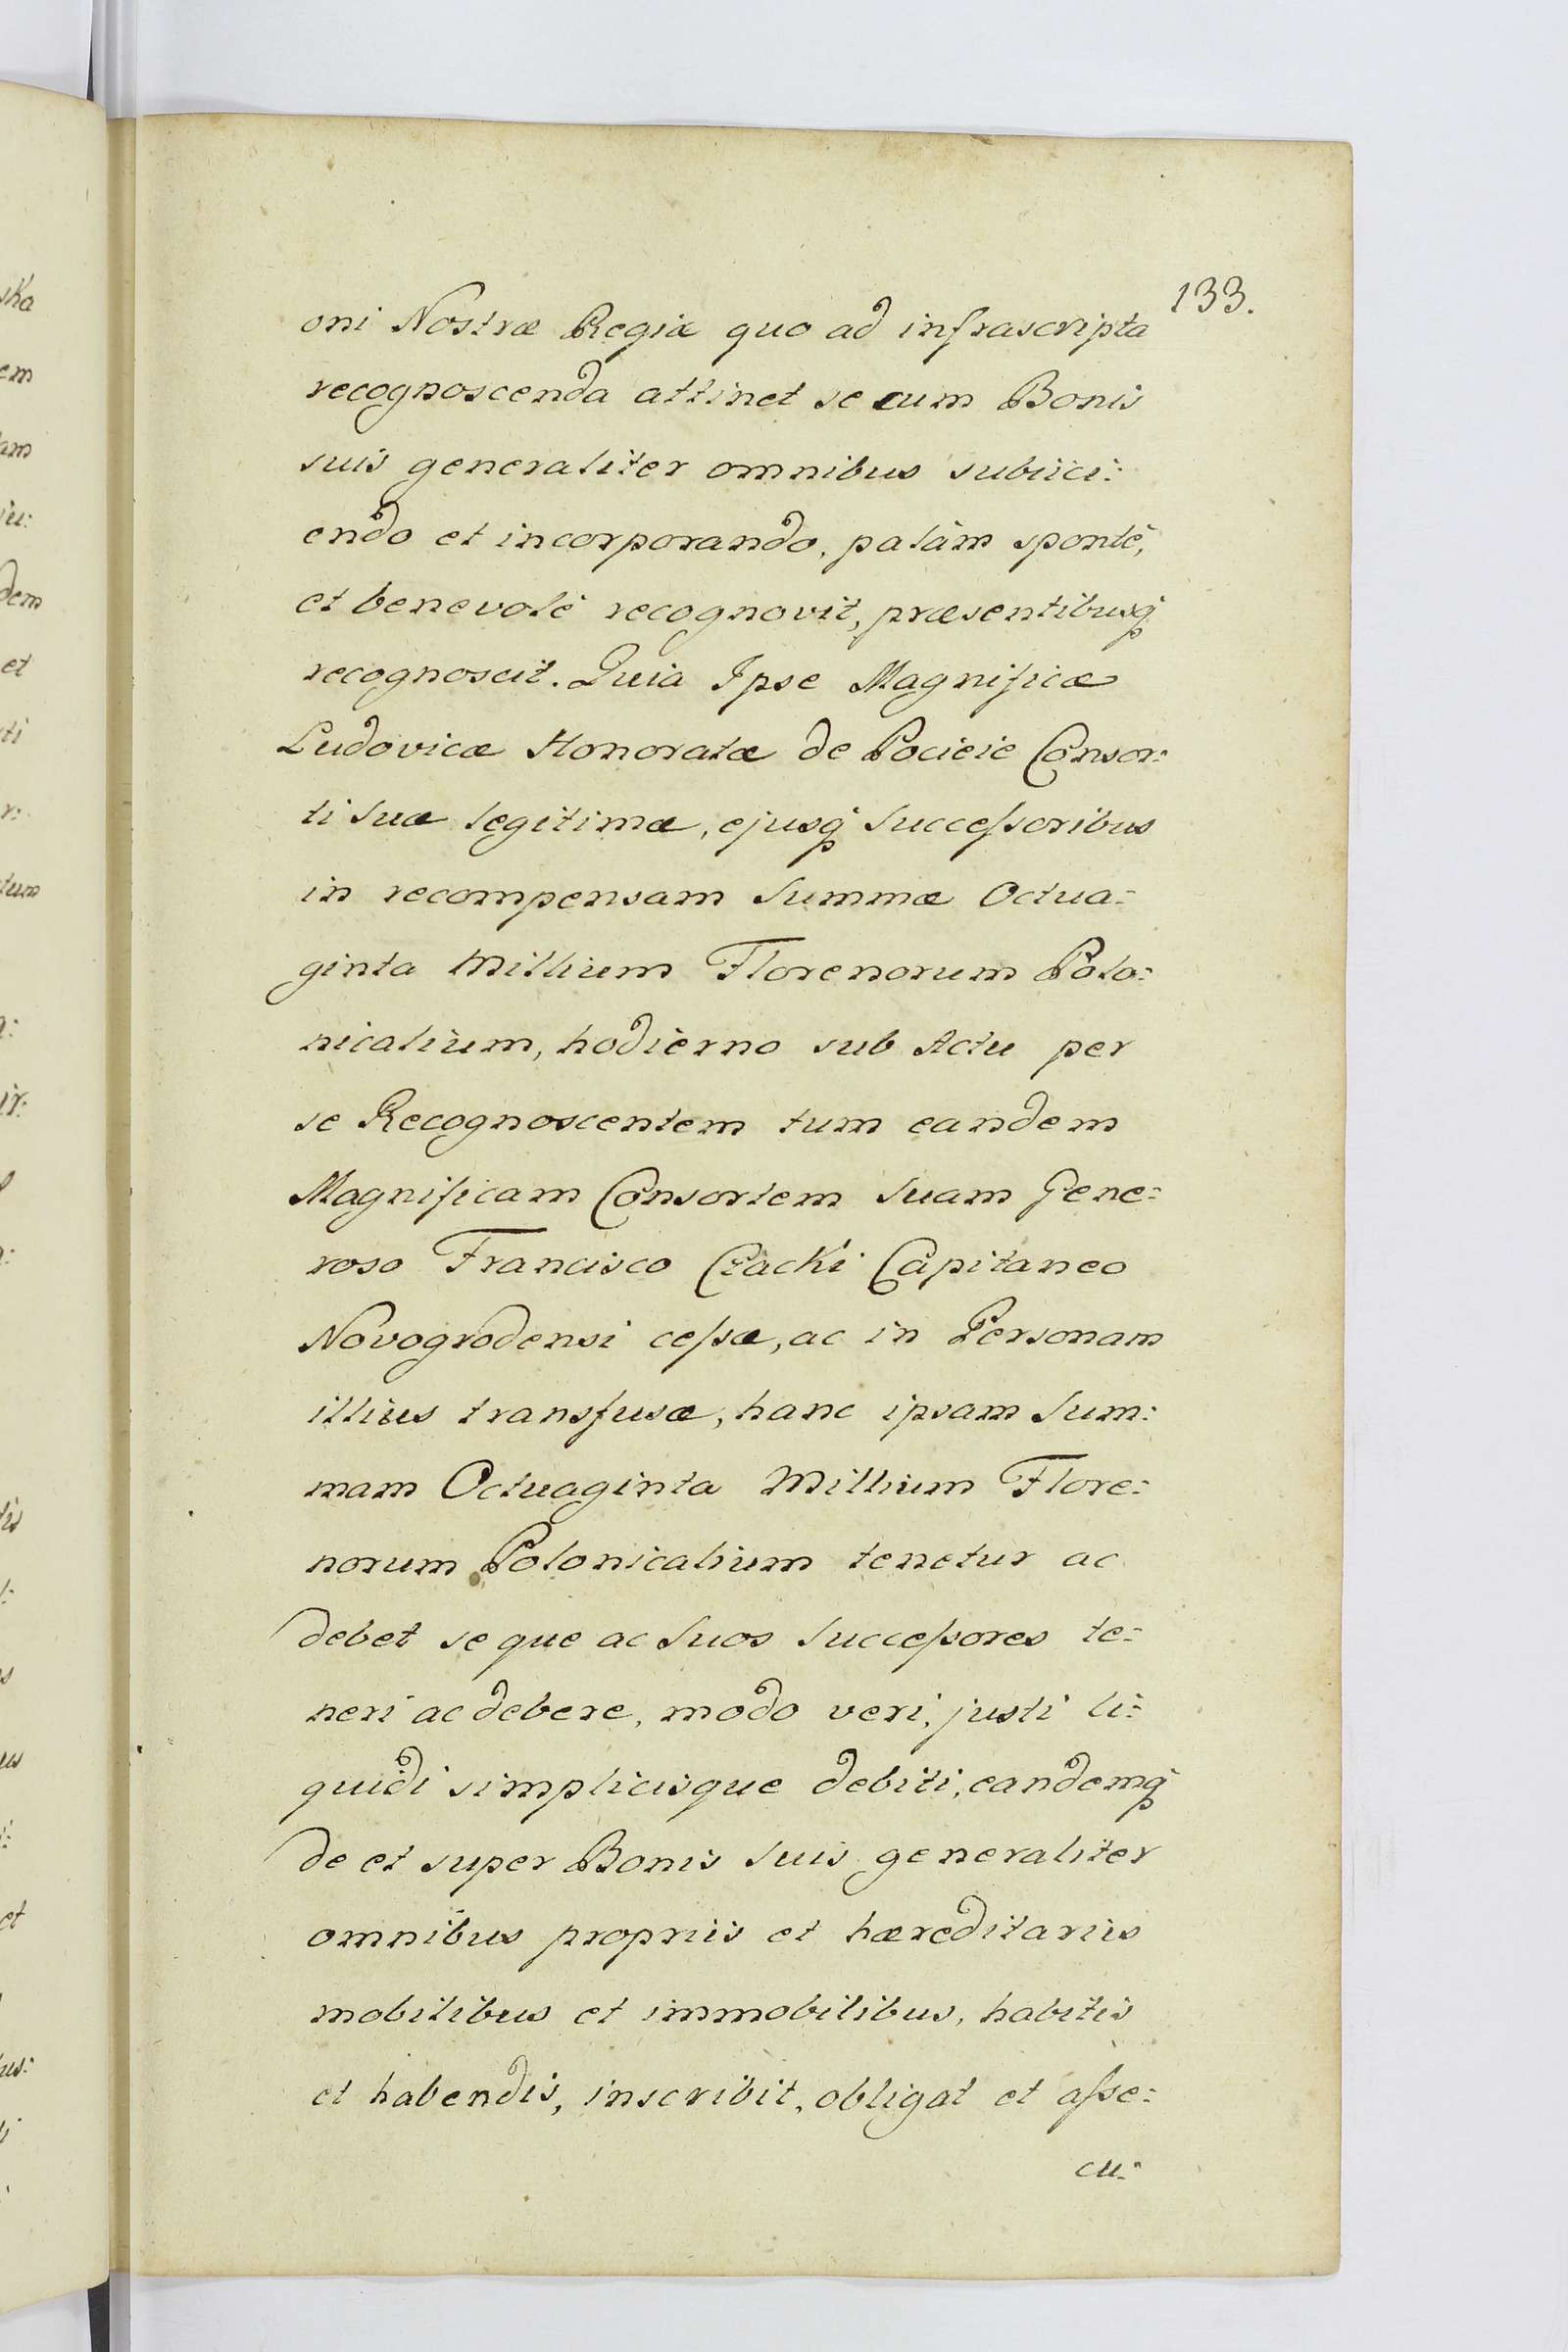 133.
oni Nostræ Regiæ quo ad infrascripta
recognoscenda attinet se cum Bonis
suis generaliter omnibus subiici:
endo et incorporando, palàm spontè,
et benevolè recognovit, præsentibusq́
recognoscit. Quia Ipse Magnificæ
Ludovicæ Honoratæ de Pocieie Consor:
ti suæ legitimæ, ejusq́ Succeſsoribus
in recompensam Summæ Octua:
ginta Millium Florenorum Polo:
nicalium, hodierno sub Actu per
se Recognoscentem tum eandem
Magnificam Consortem Suam Gene:
roso Francisco Czacki Capitaneo
Novogrodensi ceſsæ, ac in Personam
illius transfusæ, hanc ipsam Sum:
mam Octuaginta Millium Flore:
norum Polonicalium tenetur ac
debet se que ac Suos Succeſsores te:
neri ac debere, modo veri, justi li:
quidi simplicisque debiti, eandemq́
de et super Bonis Suis generaliter
omnibus propriis et hæreditariis
mobilibus et immobilibus, habitis
et habendis, inscribit, obligat et aſse:
cu:
ska
em
dem
et
ti
r:
tum
tis
et